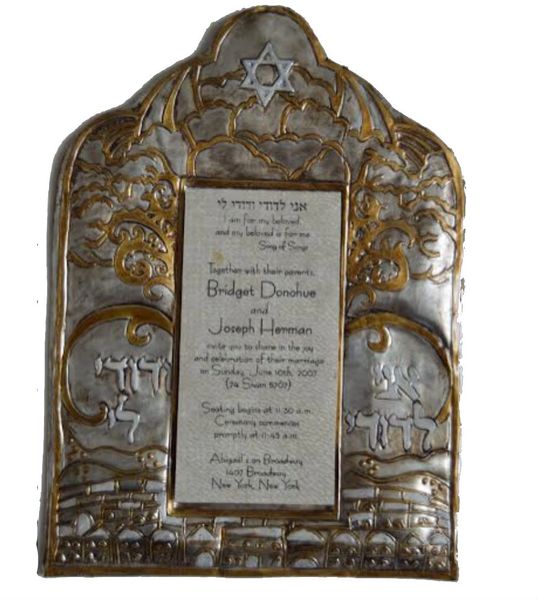 אני לדודי ודודי לי
I am for my beloved
and my beloved is for me
Song of Songs
Together with their parents,
Bridget Donohue
and
Joseph Herman
invite you to share in the joy
and celebration of their marriage
on Sunday, June 10th, 2007
(24 Sivan 5767)
Seating begins at 11:30 a.m.
Ceremony commences
promptly at 11:45 a.m.
Abigail's on Broadway
1407 Broadway
New York, New York
אני
לדודי
ודודי
לי